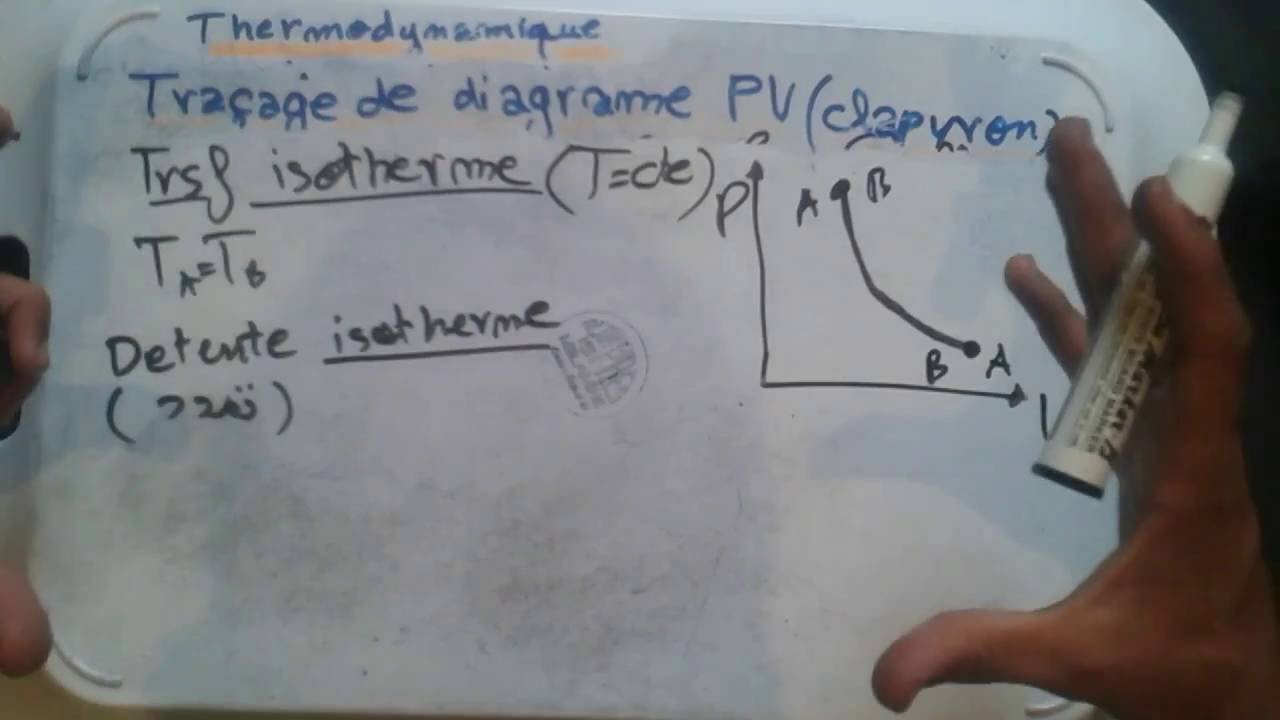 Thermodynamique
Traçage de diagrame PV (clapyron)
Trsf isotherme (T=cte)
T_A=T_B
Detente isotherme
(تمدد)
P
A B
B A